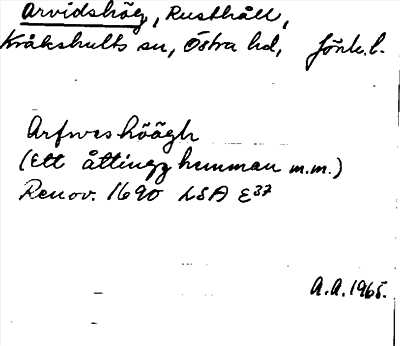 Arvidshög, Rusthåll,
Kråkshults sn, Östra hd, Jönk. l.
Arfweshöögh
(Ett åttingz hemman m.m.)
Renov. 1690 LSA E37
A.A. 1965.